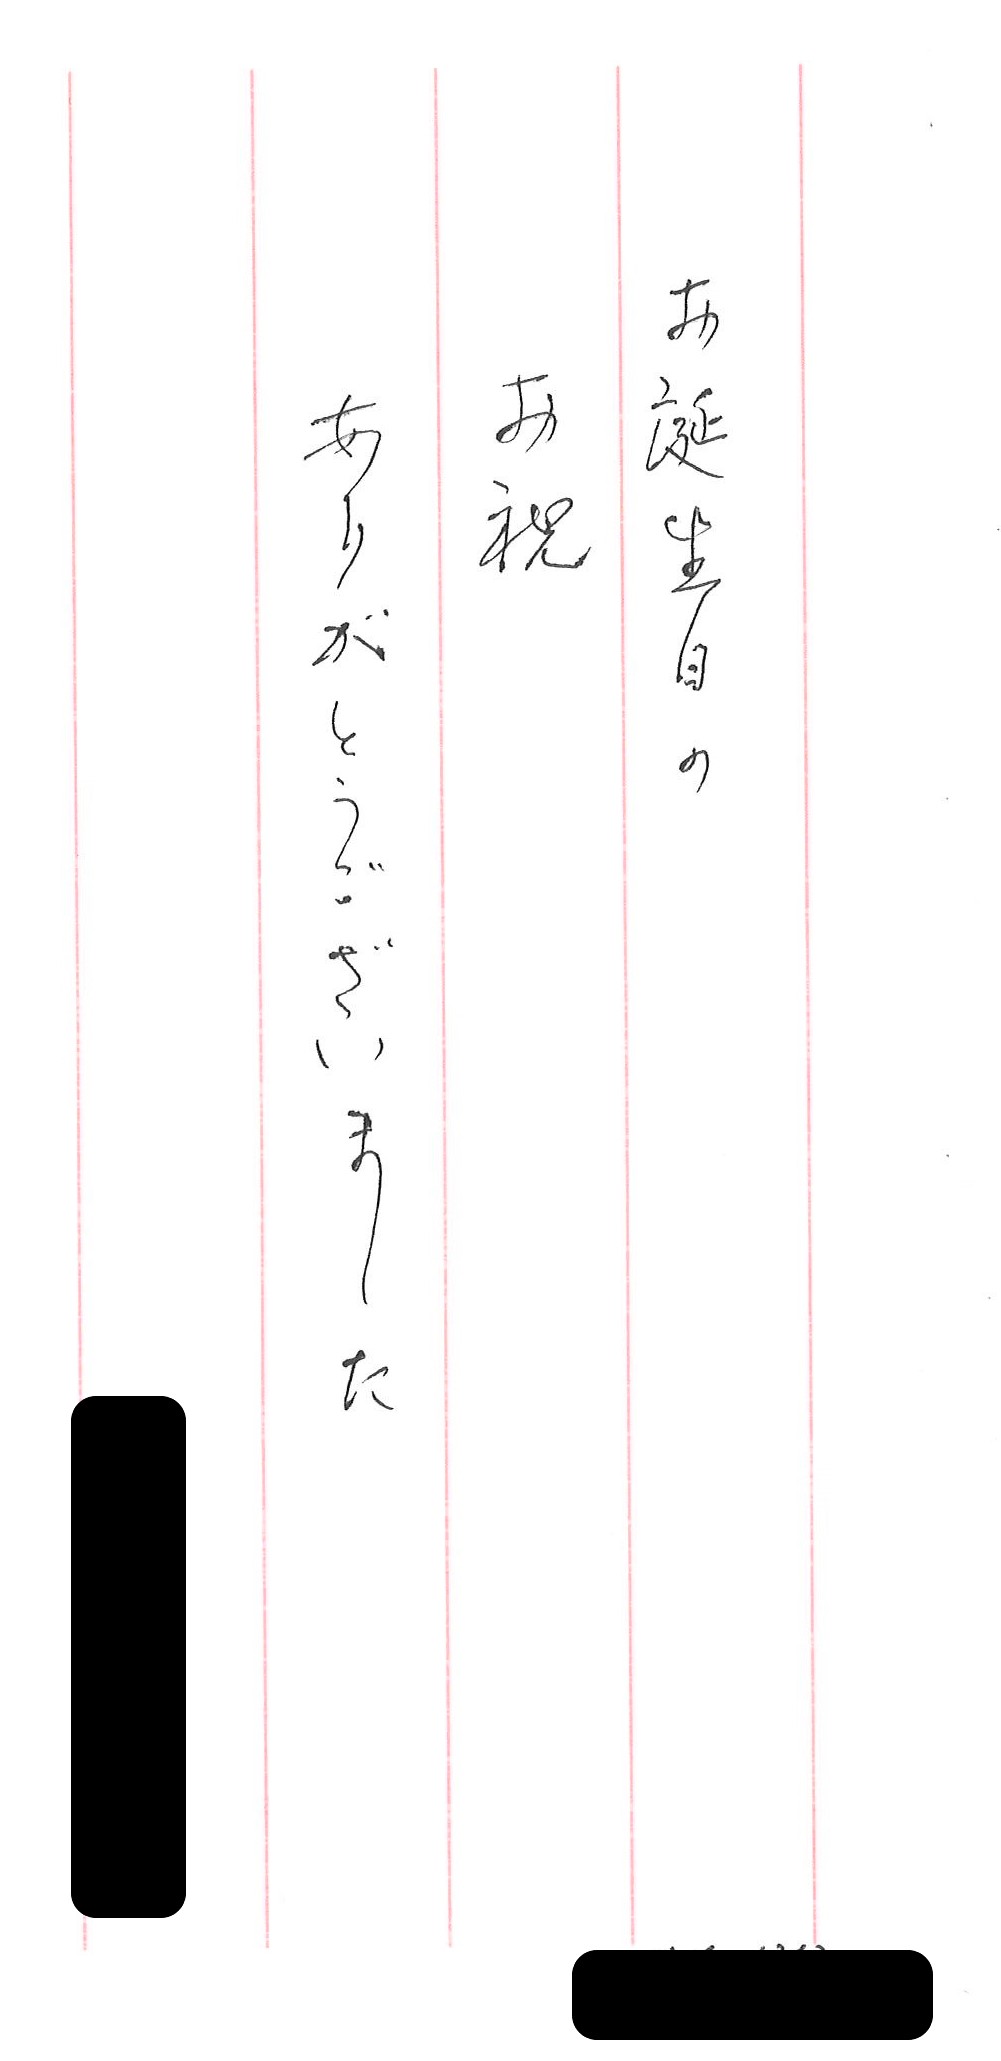 お誕生日の
お祝
ありがとうございました